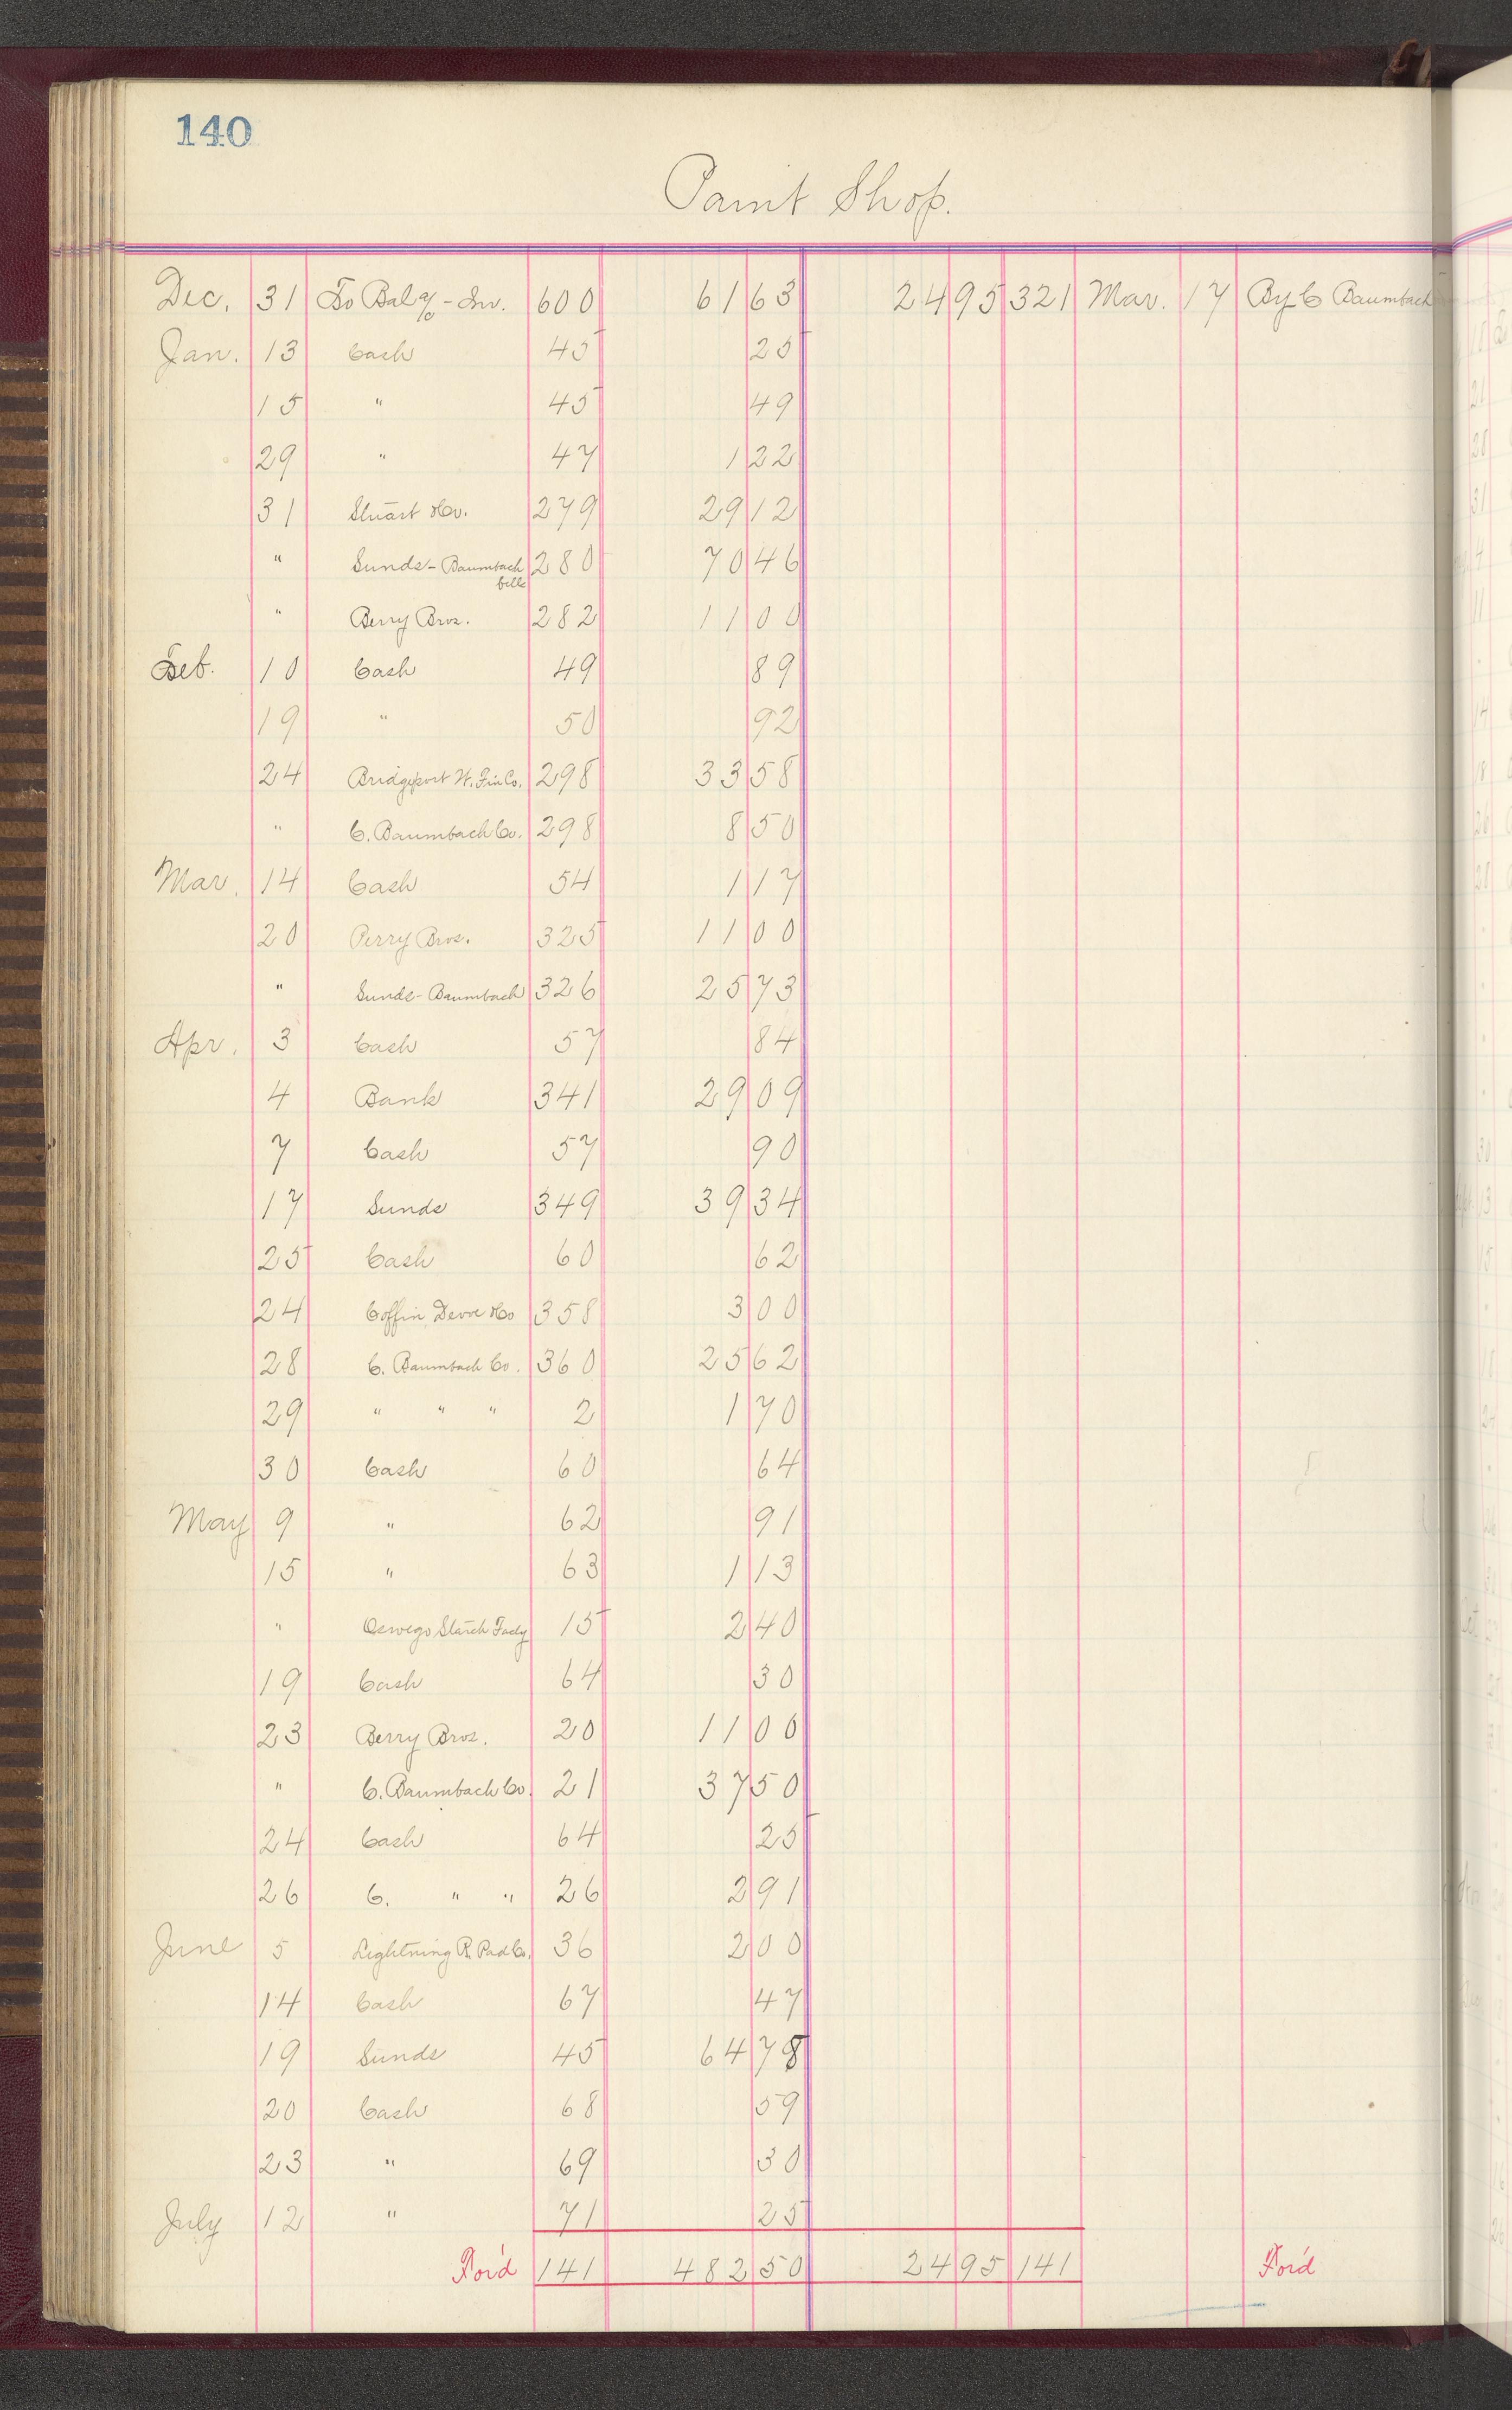 140
Paint Shop.
Dec. 31 To Bal a/c - Inv. 600 61 63 24 95 321 Mar. 17 By C Baumbach
Jan. 13 Cash 45 25
15 " 45 49
29 " 47 1 22
31 Stuart &Co. 279 29 12
" Sunds - Baumbach bills 280 70 46
" Berry Bros. 282 11 00
Feb. 10 Cash 49 89
19 " 50 92
24 Bridgeport W. Fin Co. 298 33 58
" C. Baumbach Co. 298 8 50
Mar. 14 Cash 54 1 17
20 Perry Bros. 325 11 00
" Sunds - Baumbach 326 25 73
Apr. 3 Cash 57 84
4 Bank 341 29 09
7 Cash 57 90
17 Sunds 349 39 34
25 Cash 60 62
24 Coffin Devoe &Co 358 3 00
28 C. Baumbach Co. 360 25 62
29 " " " 2 1 70
30 Cash 60 64
May 9 " 62 91
15 " 63 1 13
" Oswego Starch Facty 15 2 40
19 Cash 64 30
23 Berry Bros. 20 11 00
" C. Baumbach Co. 21 37 50
24 Cash 64 25
26 C. " " 26 2 91
June 5 Lightning R. Pad Co. 36 2 00
14 Cash 67 47
19 Sunds 45 64 78
20 Cash 68 59
23 " 69 30
July 12 " 71 25
For'd 141 482 50 24 95 141 For'd